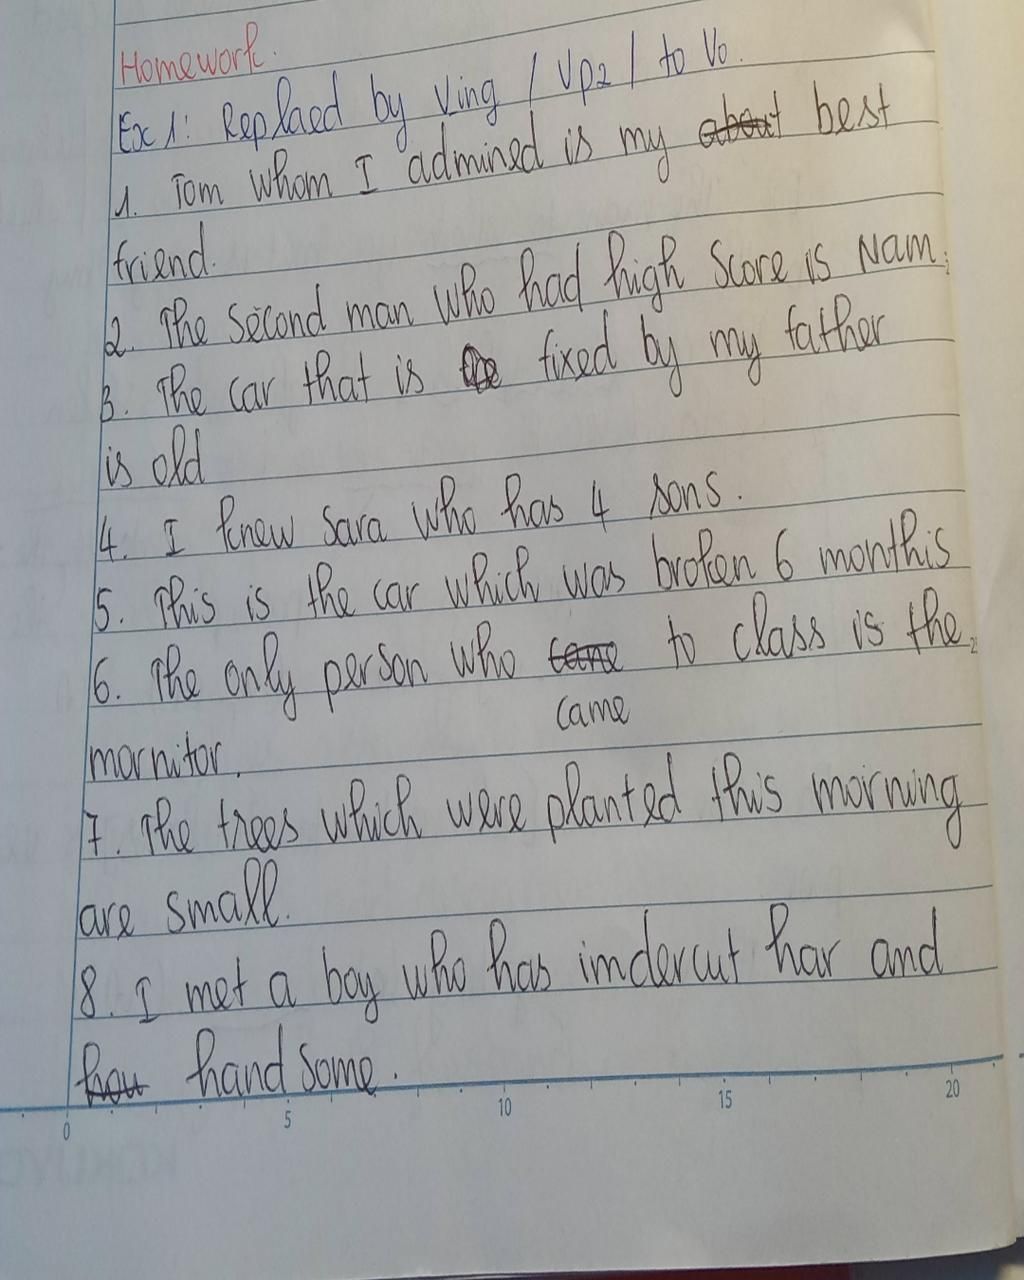 Homework.
Ex 1: Replaed by Ving / Vp2 / to Vo.
1. Tom whom I admined is my about best
friend.
2. The second man who had high Score is Nam.
3. The car that is fixed by my father
is old
4. I knew Sara who has 4 sons.
5. This is the car which was broken 6 monthis
6. The only person who came to class is the
came
mornitor.
7. The trees which were planted this morning
are small.
8. I met a boy who has imdercut har and
hand some.
0 5 10 15 20